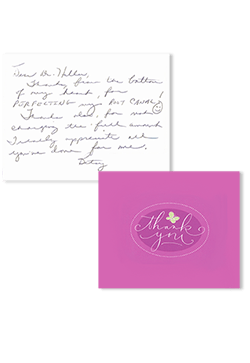 Dear Dr. Hilles,
Thanks, from the bottom
of my heart, for
PERFECTING my ROT CANAL!
Thanks also, for not
charging the full amount
I truly appreciate all
you've done for me.
Betsy
thank
you